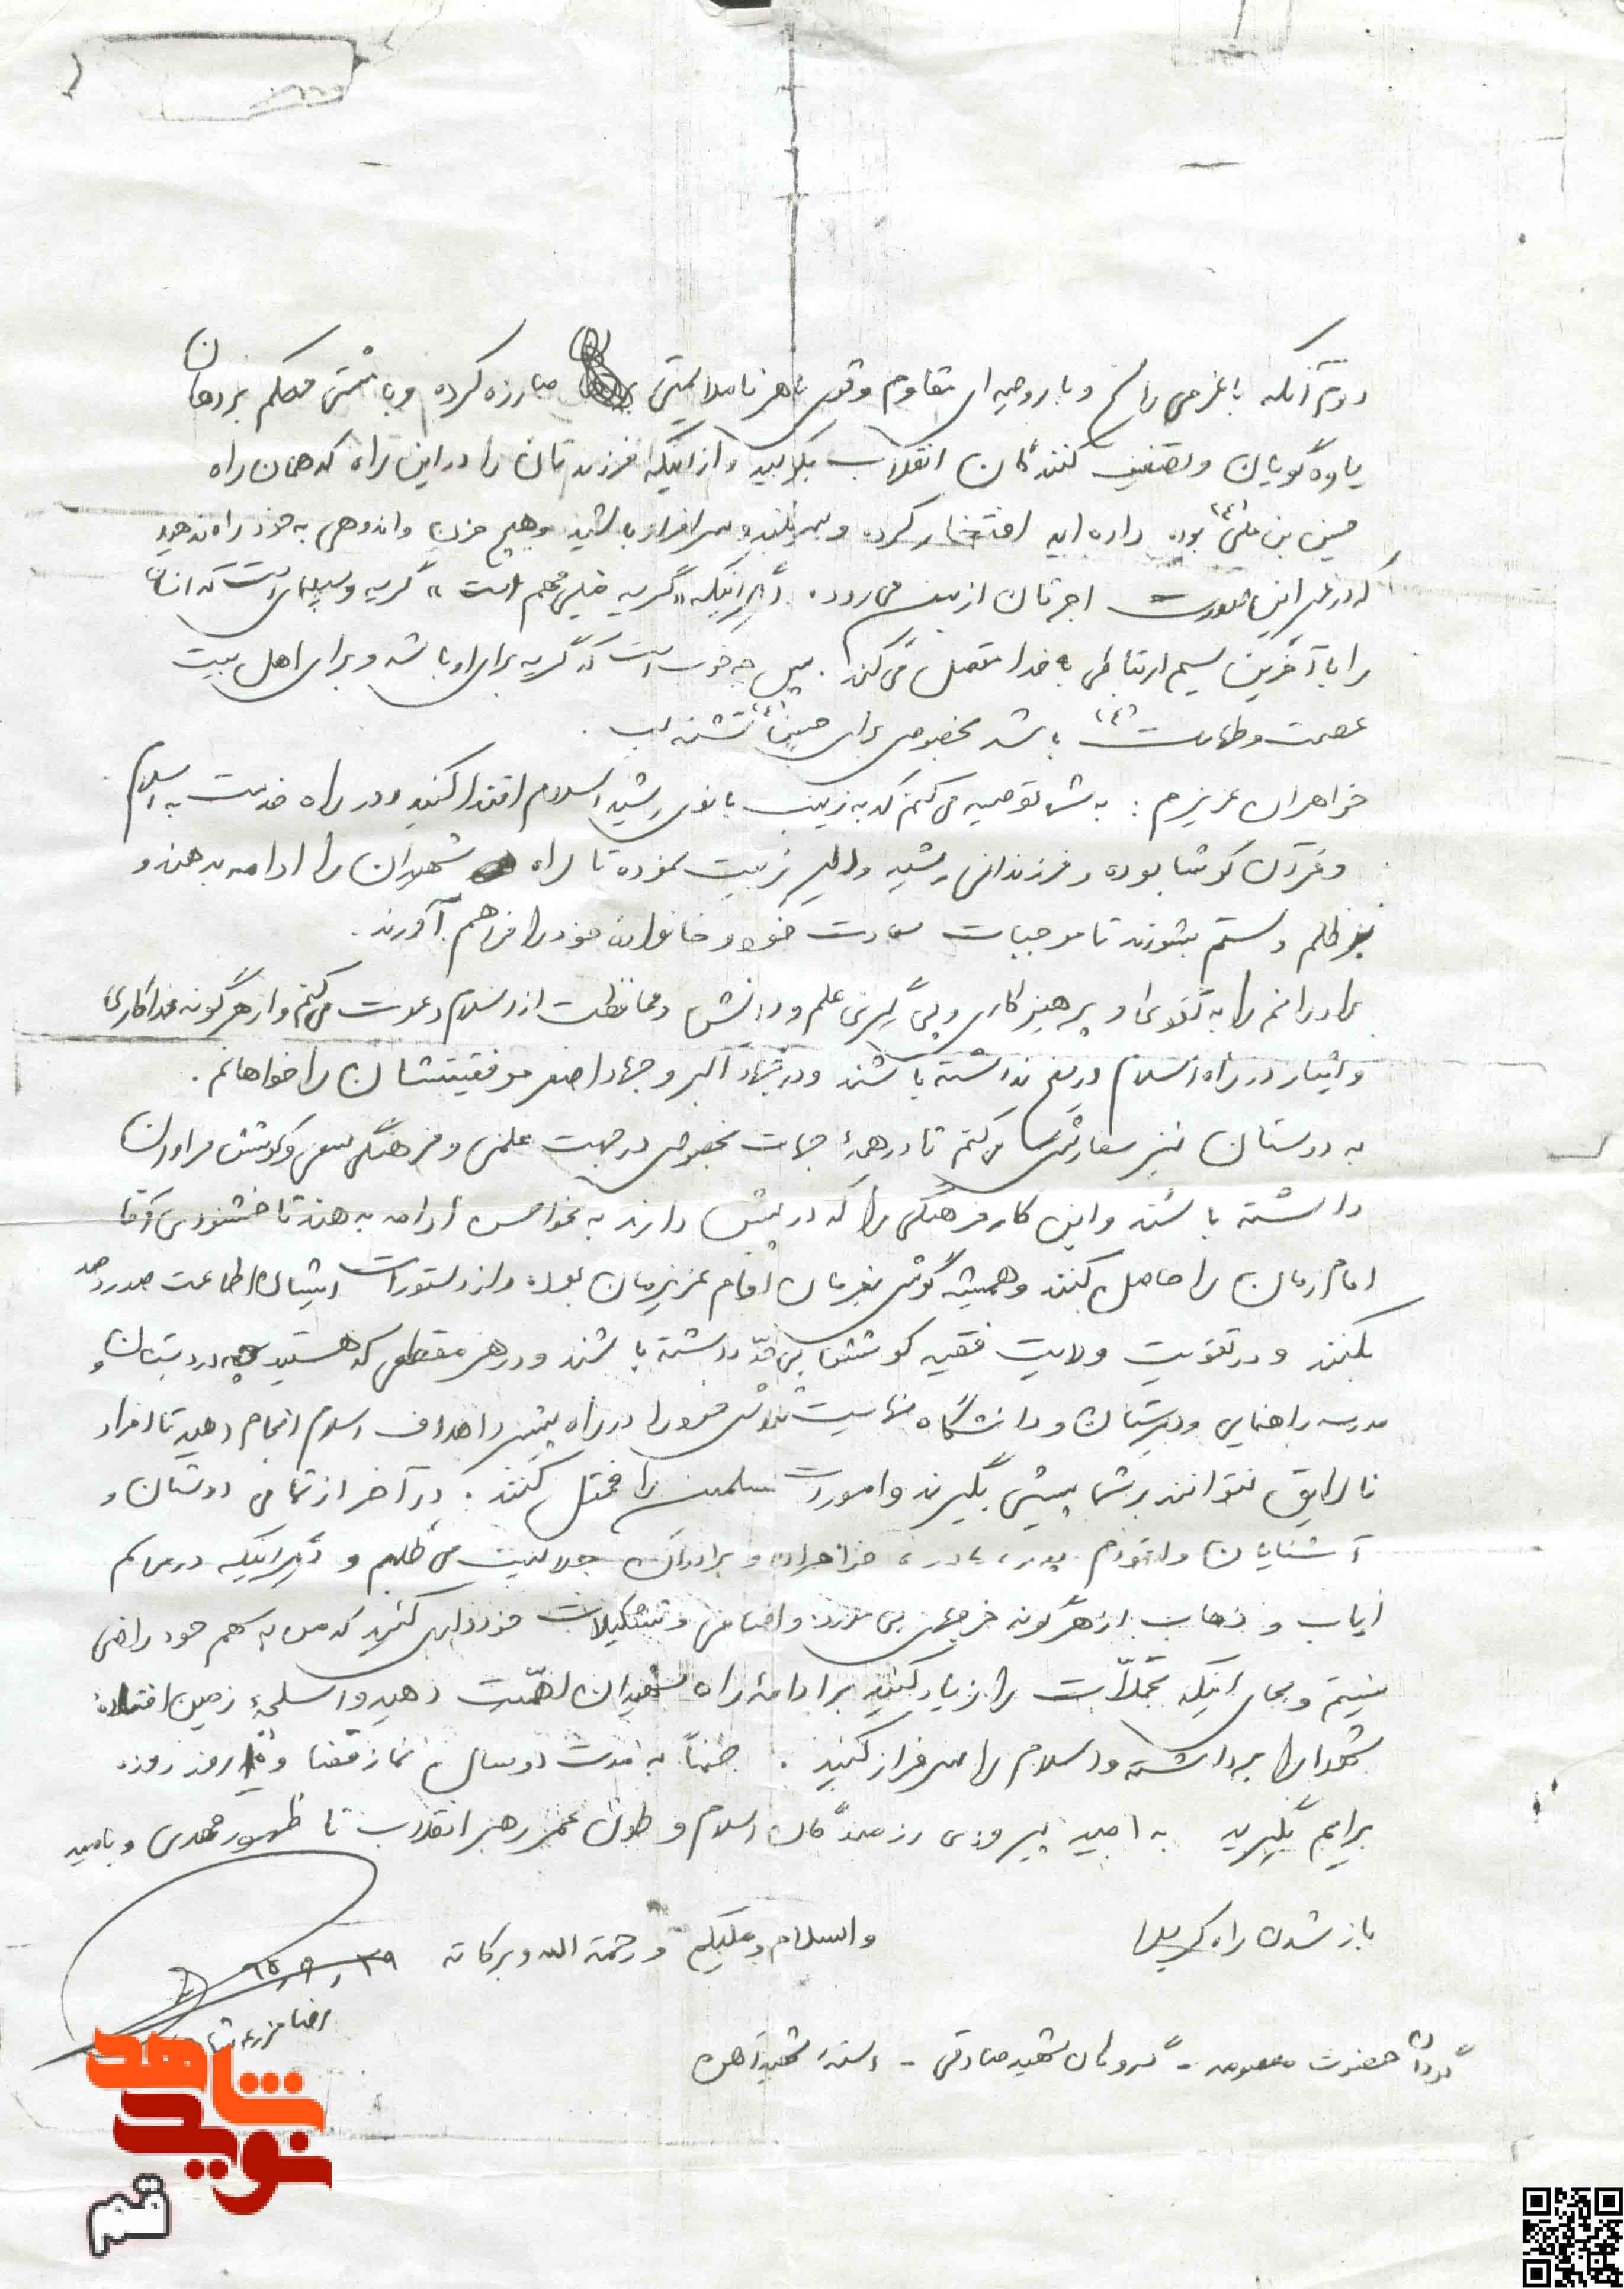 دوّم آنکه با عزمی راسخ و با روحیه ای مقاوم و قوی با هر ناملایمتی مبارزه کرده و با مشتی محکم بر دهان
یاوه گویان و تضعیف کنندگان انقلاب بکوبید و از اینکه فرزندتان را در این راه که همان راه
حسین بن علی (ع) بوده داده اید افتخار کرده و سربلند و سرافراز باشید و هیچ حزن و اندوهی به خود راه ندهید
که در غیر این صورت اجرتان از بین می رود. دیگر اینکه «گریه خیلی مهم است» گریه وسیله‌ای است که انسان
را با آخرین سیم ارتباطی به خدا متصل می کند. پس چه خوب است که گریه برای او باشد و برای اهل بیت
عصمت و طهارت (ع) باشد بخصوص برای حسین (ع) تشنه لب.
خواهران عزیزم : به شما توصیه می کنم که به زینب بانوی رشید اسلام اقتدا کنید و در راه خدمت به اسلام
و قرآن کوشا بوده و فرزندانی رشید و دلیر تربیت نموده تا راه شهیدان را ادامه بدهند و
ظلم و ستم بشورند تا موجبات سعادت خود و خانواده خود را فراهم آورند.
برادرانم را به تقوی و پرهیزکاری و پی گیری علم و دانش و محافظت از اسلام دعوت می کنم و از هرگونه فداکاری
و ایثار در راه اسلام دریغ نداشته باشند و در جهاد اکبر و جهاد اصغر موفقیتشان را خواهانم.
به دوستان نیز سفارش می کنم تا در همهٔ جهات بخصوص در جهت علمی و فرهنگی سعی و کوشش فراوان
داشته باشند و این کار فرهنگی را که در پیش دارند به نحو احسن ادامه بدهند تا خشنودی آقا
امام زمان را حاصل کنند و همیشه گوش بفرمان امام عزیزمان بوده و از دستورات ایشان اطاعت صددرصد
بکنند و در تقویت ولایت فقیه کوششی بی حدّ داشته باشند و در هر مقطعی که هستید چه در دبستان و
مدرسه راهنمایی و دبیرستان و دانشگاه نهایت تلاش خود را در راه پیشبرد اهداف اسلام انجام دهید تا افراد
نالایق نتوانند بر شما پیشی بگیرند و امورات مسلمین را مختل کنند. در آخر از تمامی دوستان و
آشنایان و اقوام پدر، مادر، خواهران و برادران حلالیت می طلبم و دیگر اینکه در مراسم
ایاب و ذهاب از هرگونه خرجهای بی مورد و اضافی و تشکیلات خودداری کنید که من به سهم خود راضی
نیستم و بجای اینکه تجملّات را زیاد کنید بر ادامهٔ راه شهیدان اهمّیت دهید و اسلحهٔ زمین افتادهٔ
شهدا را برداشته و اسلام را سرفراز کنید. ضمناً به مدت دو سال نماز قضا و روز روزه
برایم بگیرید به امید پیروزی رزمندگان اسلام و طول عمر رهبر انقلاب تا ظهور مهدی و بامید
باز شدن راه کربلا والسلام علیکم و رحمة الله و برکاته ۶۵/۹/۲۹
رضا مزرعه
گردان حضرت معصومه - گروهان شهید صادقی - دسته شهید
نوید شاهد
قم